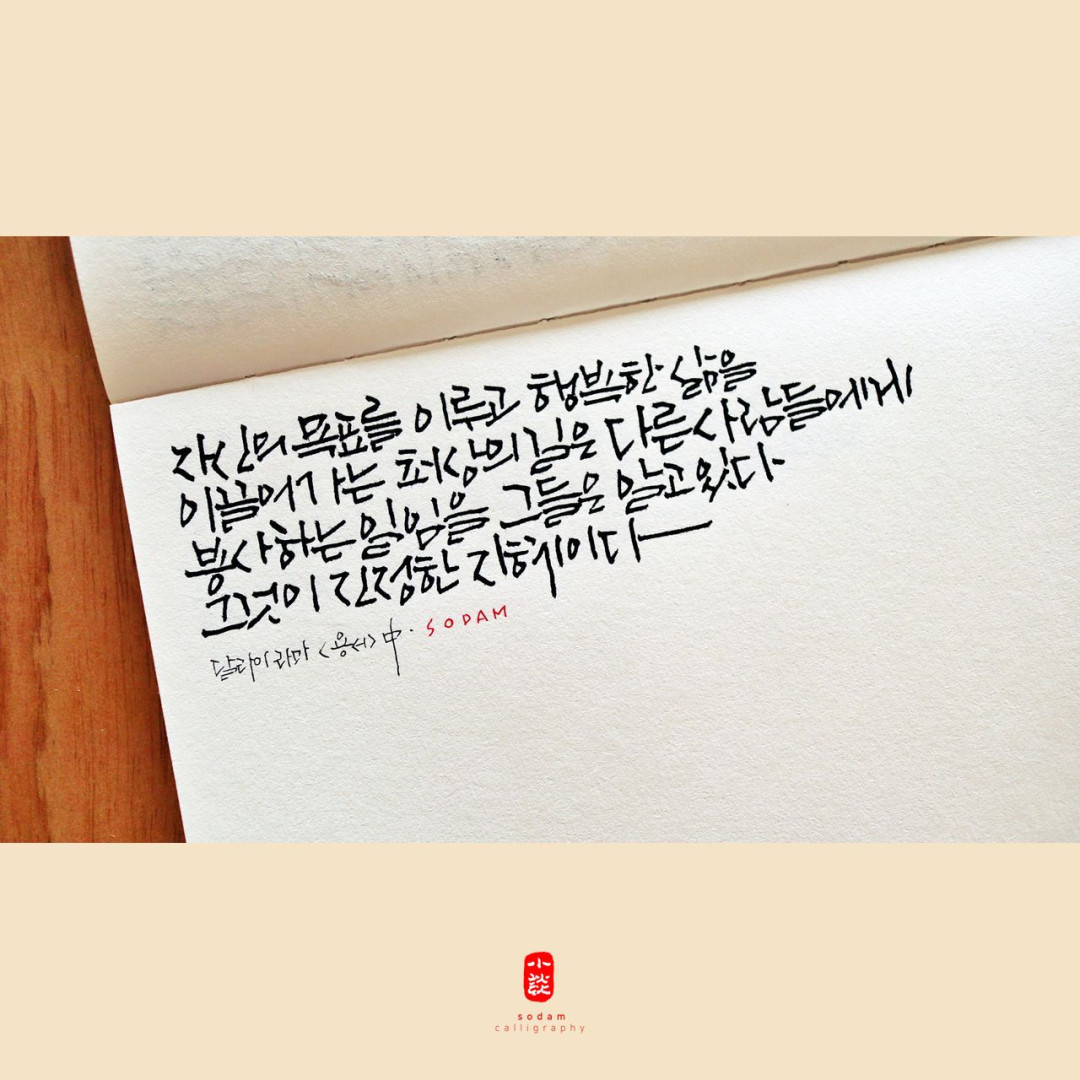 자신의 목표를 이루고 행복한 삶을
이끌어가는 최상의 길은 다른 사람들에게
봉사하는 일임을 그들은 알고 있다
그것이 진정한 지혜이다
달라이 라마 <용서> 中. SODAM
小談
sodam
calligraphy